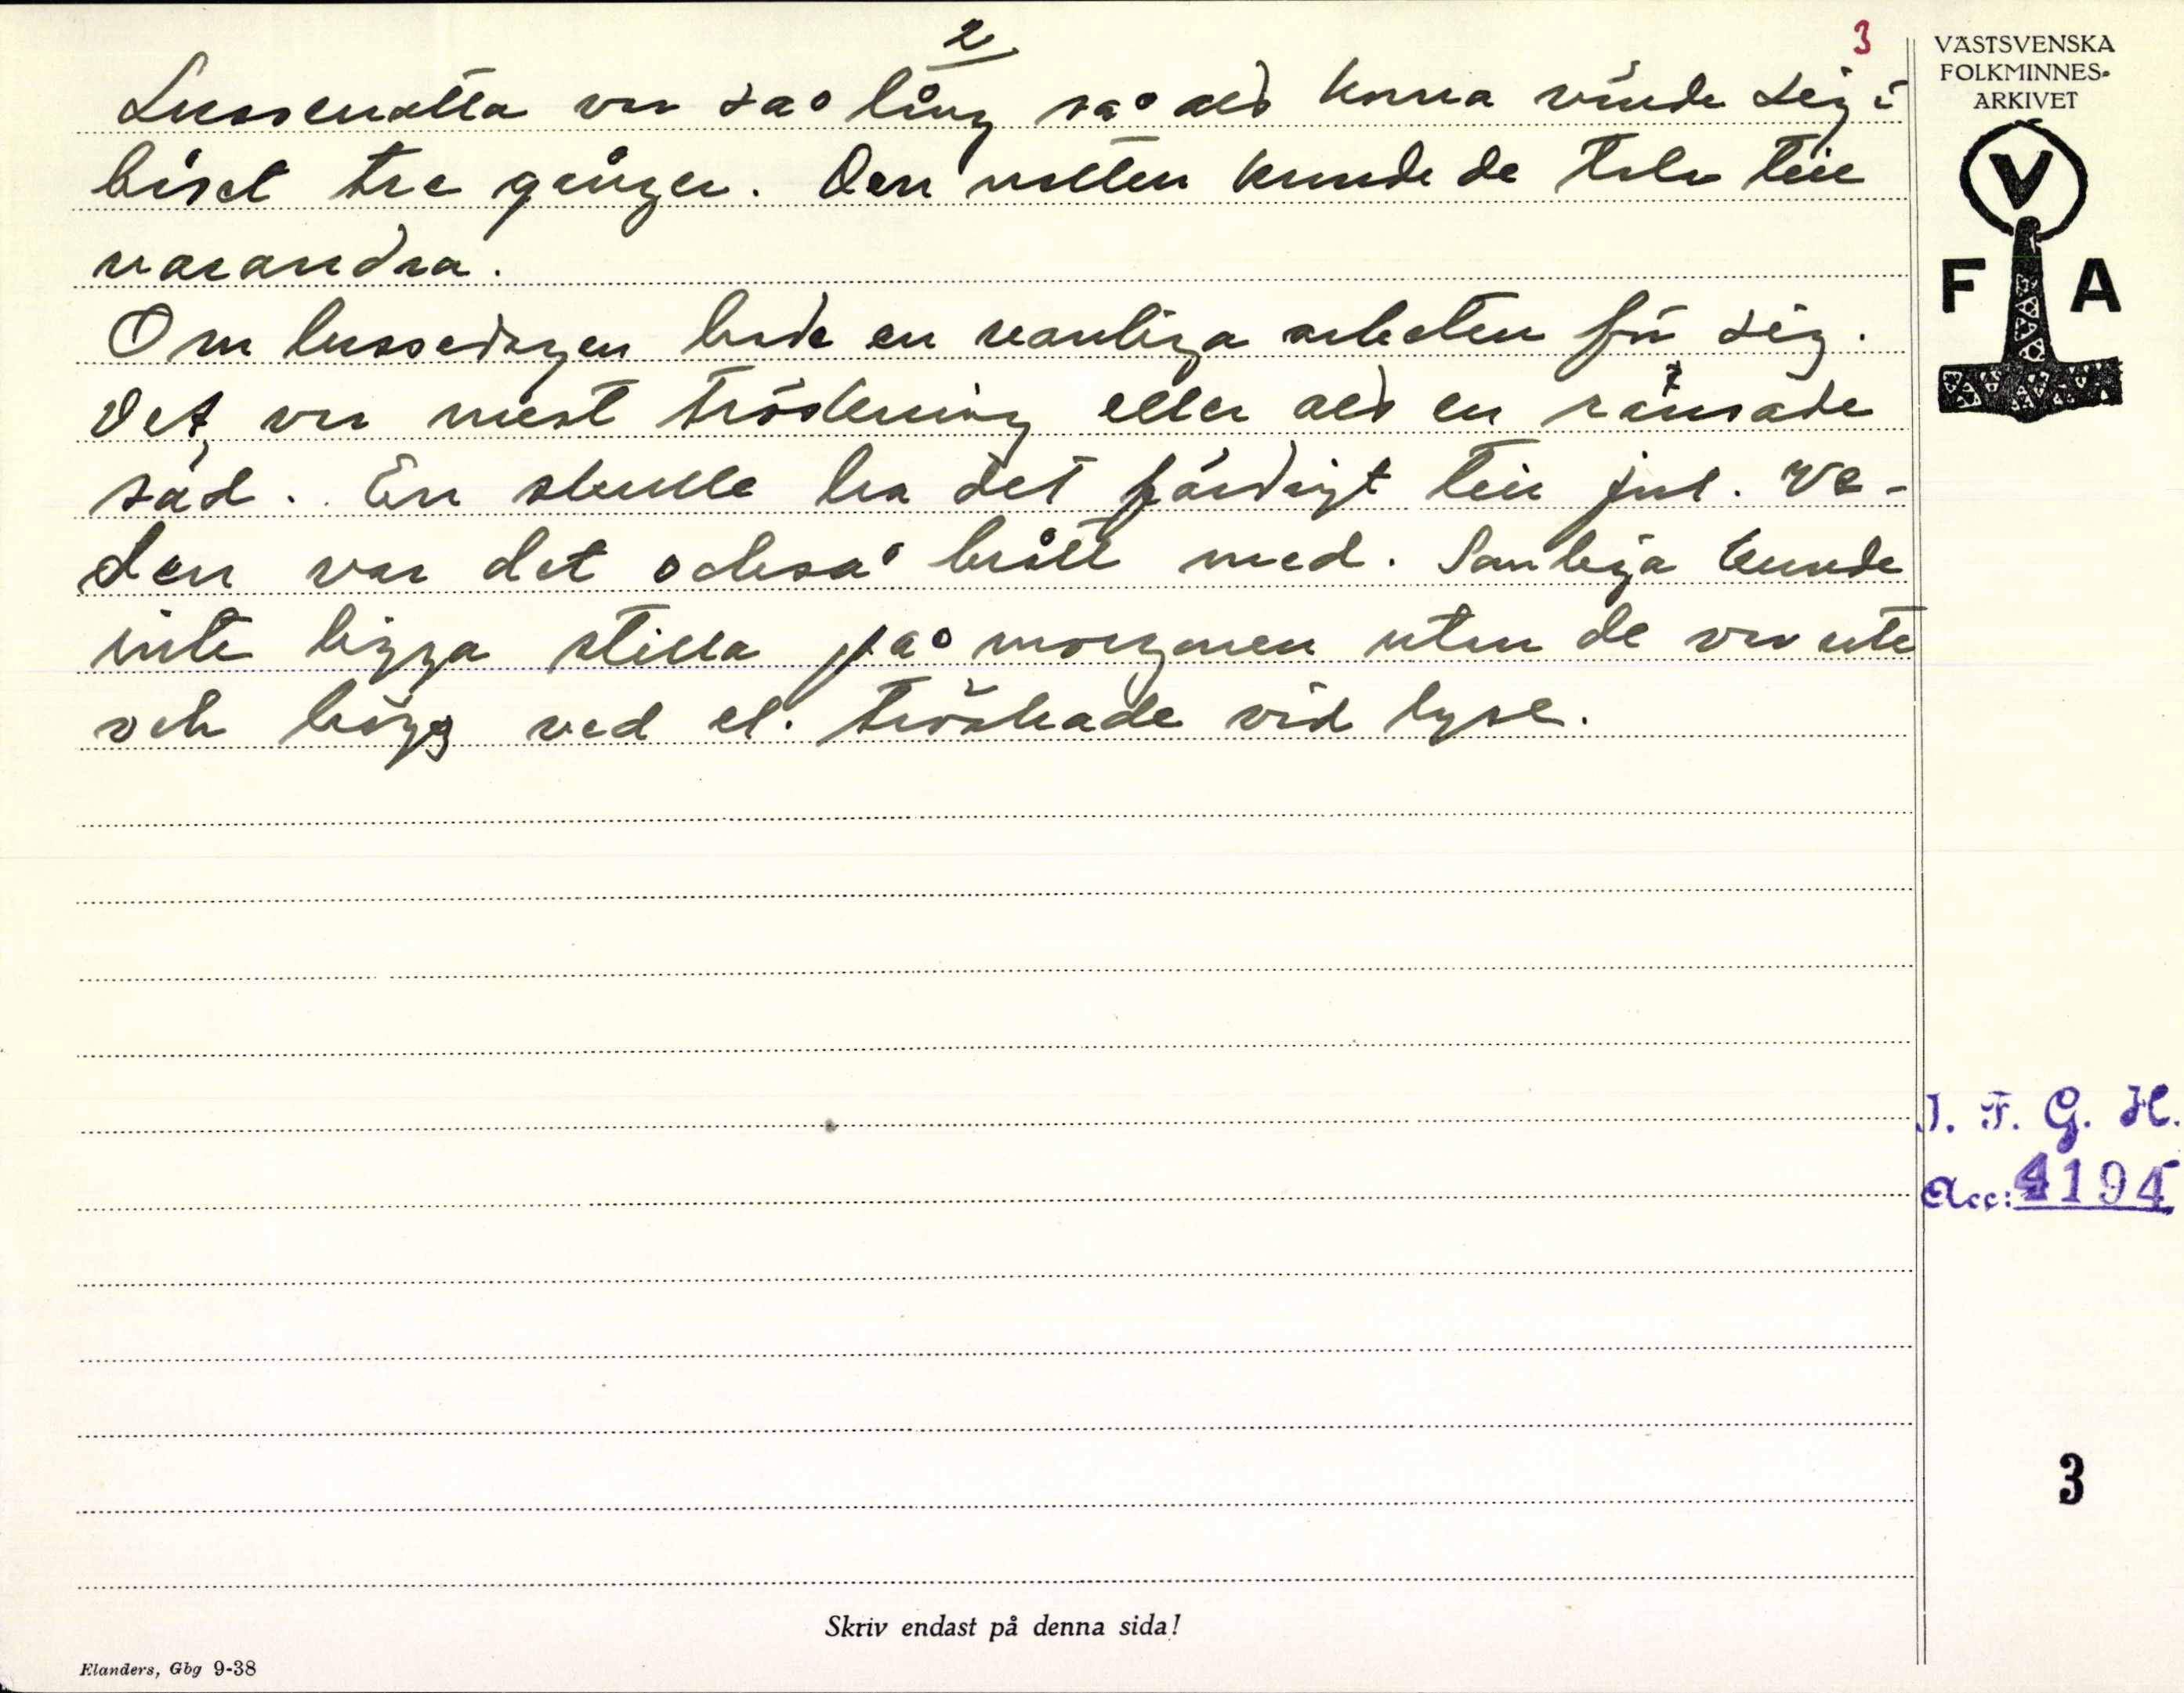 2
3
Lussenatta var så lång så att korna vände sig i
båset tre gånger. Den natten kunde de tala till
varandra.
Om lussedagen hade en vanliga arbeten för sig.
Det var mest tröskning eller att en rensade
säd. En skulle ha det färdigt till jul. Ve-
den var det också brått med. Somliga kunde
inte ligga stilla på morgonen utan de var ute
och högg ved el. tröskade vid lyse.
VÄSTSVENSKA
FOLKMINNES-
ARKIVET
V
F A
I. F. G. H.
Acc: 4194
3
Skriv endast på denna sida!
Elanders, Gbg 9-38